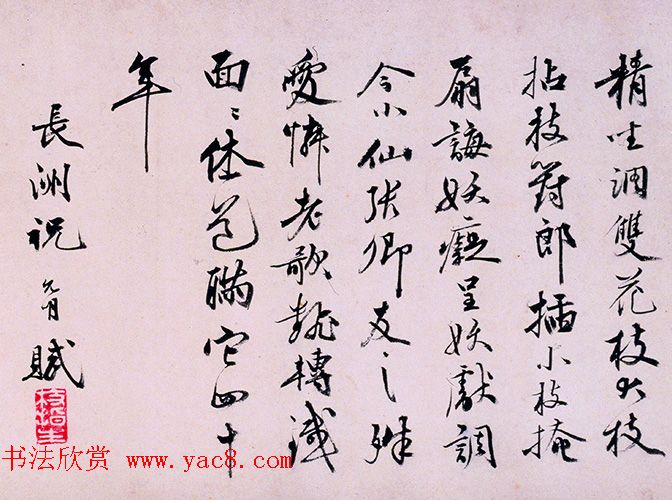 精調雙花枝大枝
拈枝對郎插小枝掩
扇誨妖癡呈妖獻調
今小仙張卿友之殊
愛憐老歌轉識
面〻休瞞它四十
年
長洲祝允明賦
枝指生
书法欣赏 www.yac8.com